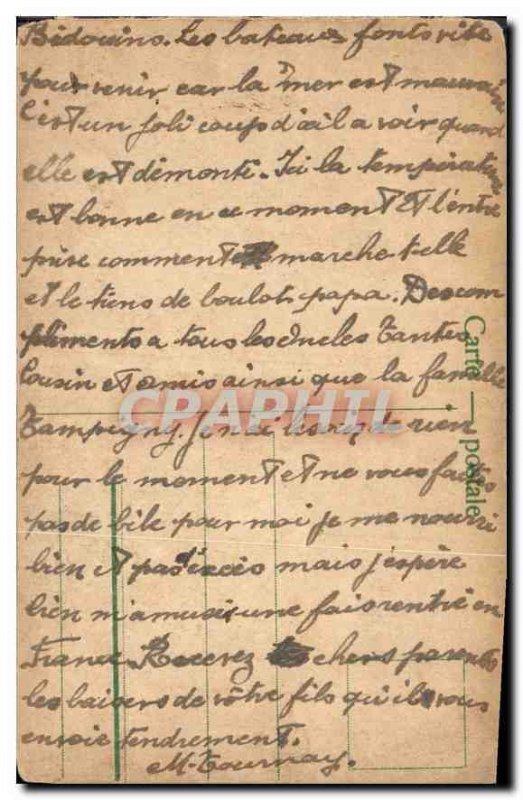 Bédouins. Les bateaux fonts vite
pour venir car la mer est mauvaise
C'est un joli coups d'œil a voir quand
elle est démonté. Ici la température
est bonne en ce moment Et l'entre
prise comment marche-t-elle
et le tiens de boulot papa. Des com
pliments a tous les Oncles Tantes
Cousin et amis ainsi que la famille
Tampigny. Je n'ai besoin de rien
pour le moment et ne vous faites
pas de bile pour moi je me nourri
bien et pas d'excès mais j'espère
bien m'amuser une fais rentré en
France. Recevez chers parents
les baisers de vôtre fils qu'il vous
envoie tendrement.
M. Tournay.
Carte postale
CPAPHIL